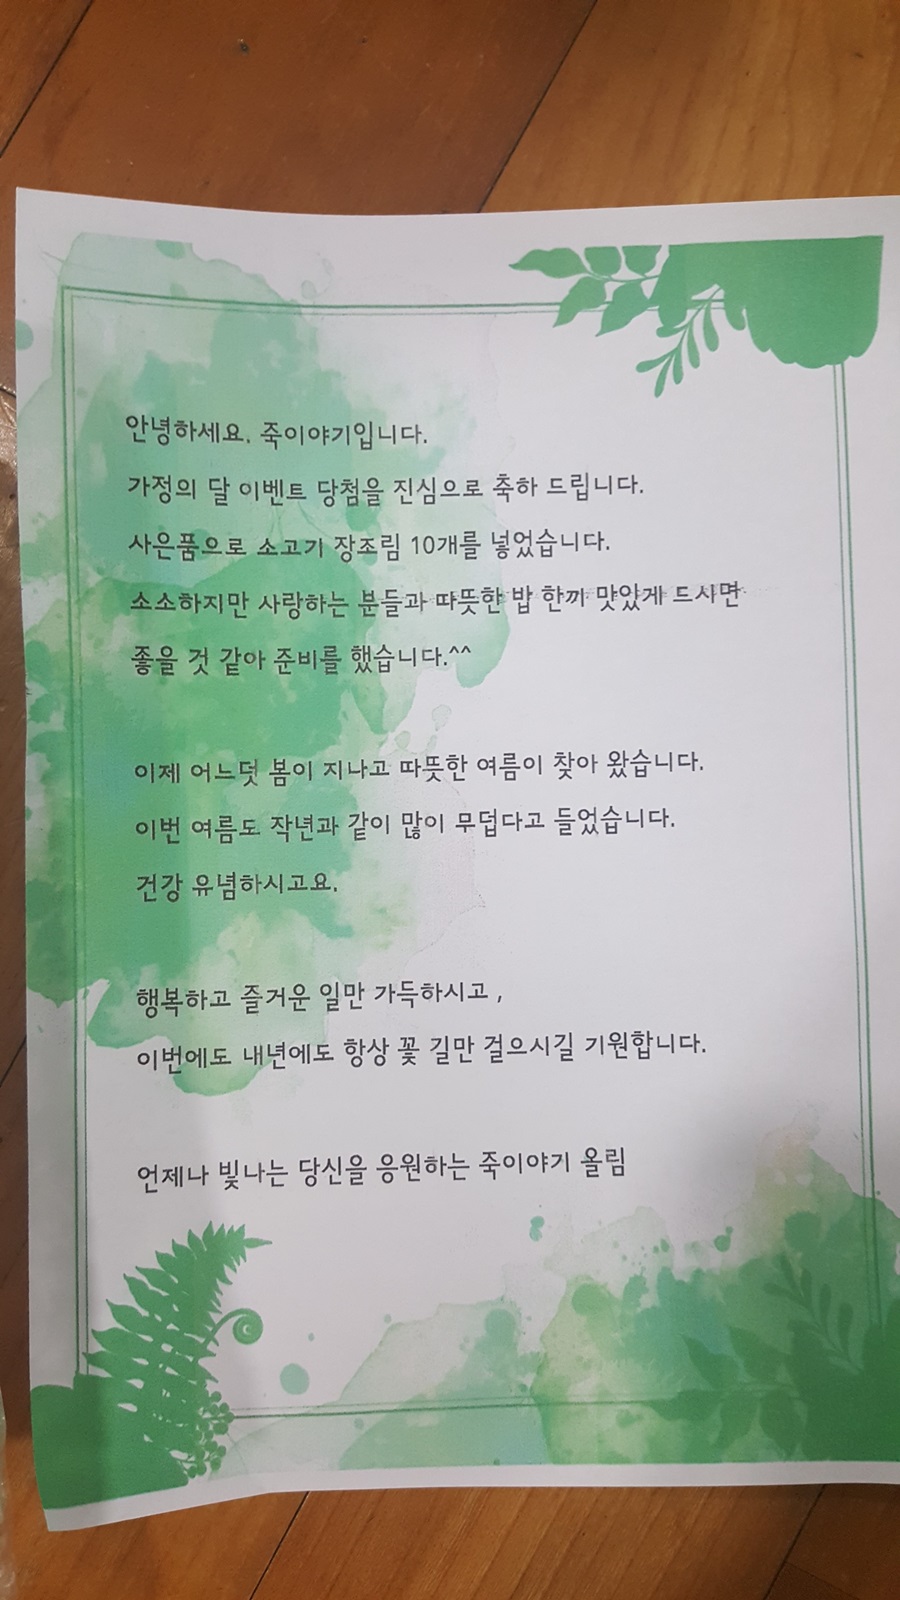 안녕하세요. 죽이야기입니다.
가정의 달 이벤트 당첨을 진심으로 축하 드립니다.
사은품으로 소고기 장조림 10개를 넣었습니다.
소소하지만 사랑하는 분들과 따뜻한 밥 한끼 맛있게 드시면
좋을 것 같아 준비를 했습니다.^^
이제 어느덧 봄이 지나고 따뜻한 여름이 찾아 왔습니다.
이번 여름도 작년과 같이 많이 무덥다고 들었습니다.
건강 유념하시고요.
행복하고 즐거운 일만 가득하시고 ,
이번에도 내년에도 항상 꽃 길만 걸으시길 기원합니다.
언제나 빛나는 당신을 응원하는 죽이야기 올림